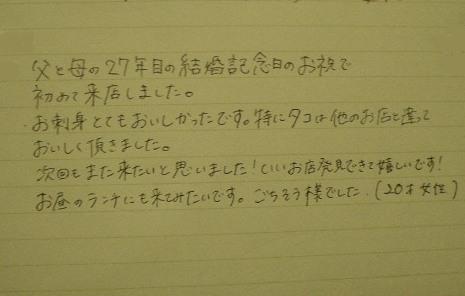 父と母の27年目の結婚記念日のお祝で
初めて来店しました。
お刺身とてもおいしかったです。特にタコは他のお店と違って
おいしく頂きました。
次回もまた来たいと思いました!いいお店発見できて嬉しいです!
お昼のランチにも来てみたいです。ごちそう様でした。(20才女性)